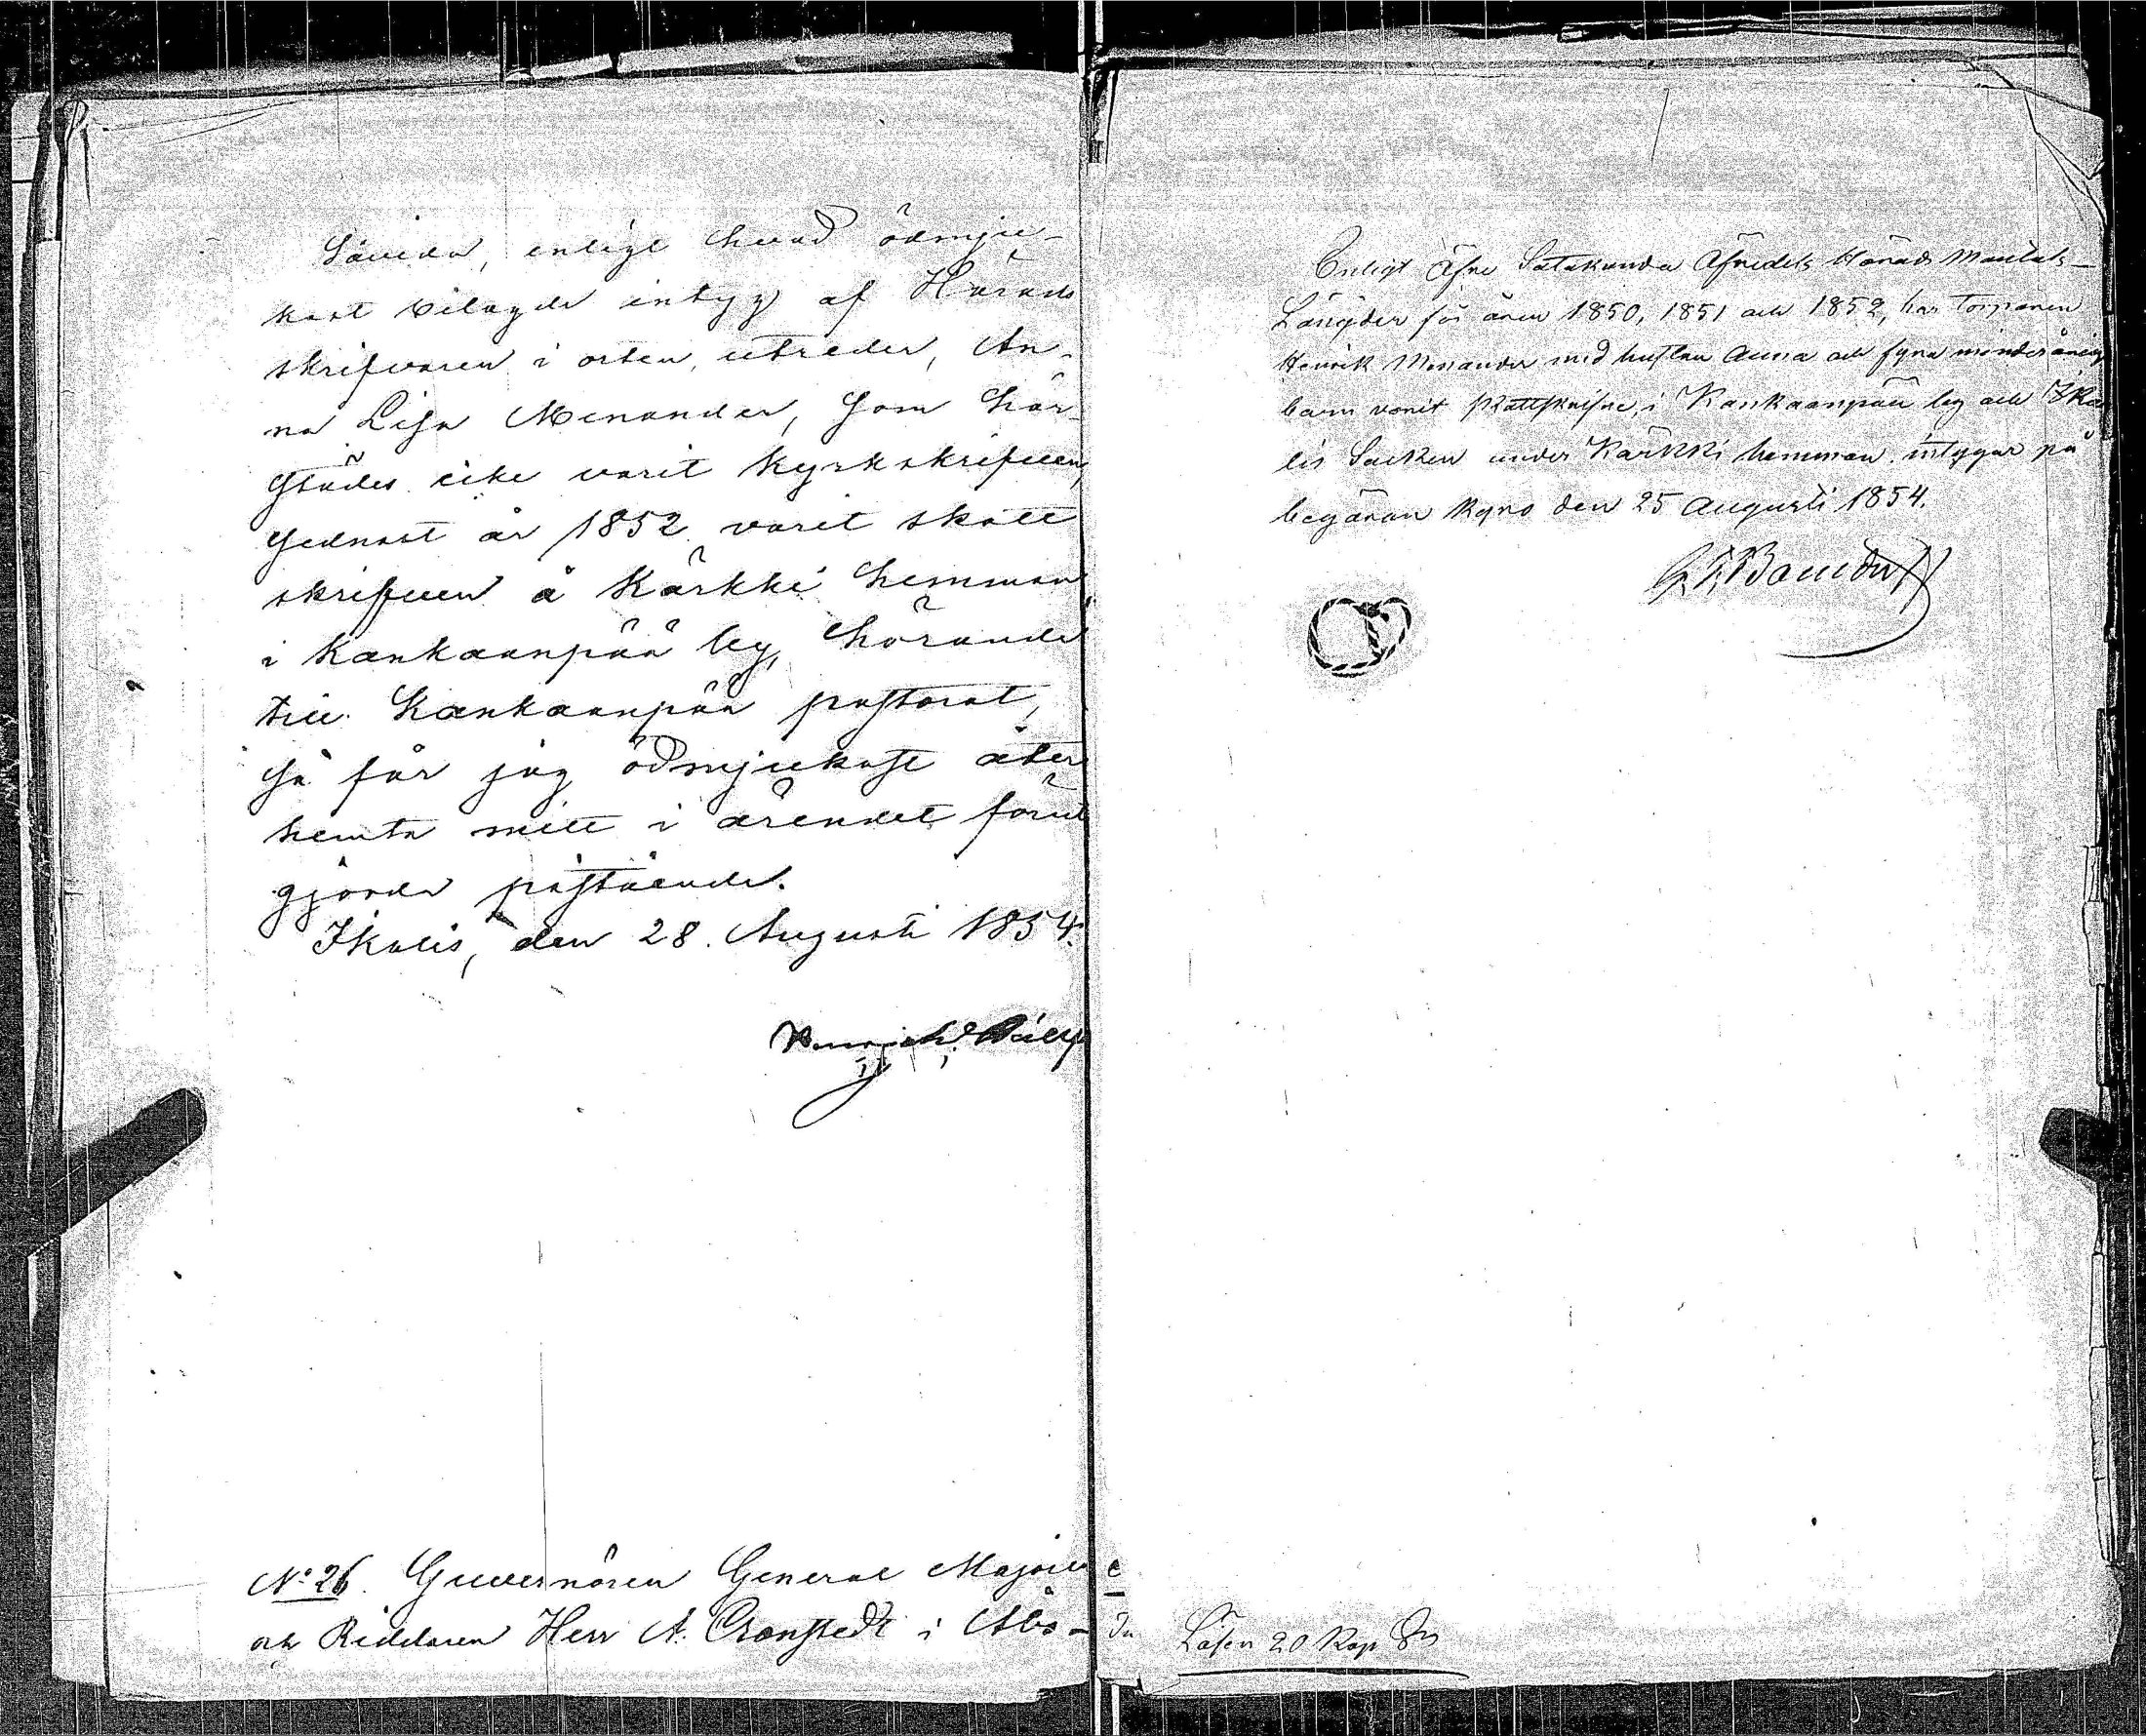 Såvida, enligt hvad ödmju-
kast bilagde intyg af Härads
skrifvaren i orten, utreder, An-
na Lisa Menander, som här-
städes icke varit kyrkskrifven,
sednast år 1852 varit skatt
skrifven å Kärkki hemman
i Kankaanpää by, hörande
till Kankaanpää pastorat,
så får jag ödmjukast åter
hemta mitt i ärendet förut
gjorde påstående.
Ikalis, den 28. Augusti 1854.
N:o 26. Guvernören General Majoren
och Riddaren Herr A. Cronstedt i Åbo-
Enligt Öfre Satakunda Öfredels Härads Mantals-
Längder för åren 1850, 1851 och 1852, har Torparen
Henrik Menander med hustrun Anna och fyra minderårig
barn varit skattskrifne, i Kankaanpää by och Ika
lis Socken under Kärkki hemman. intygar på
begäran Kyro den 25 Augusti 1854.
Lösen 20 Kop Sr